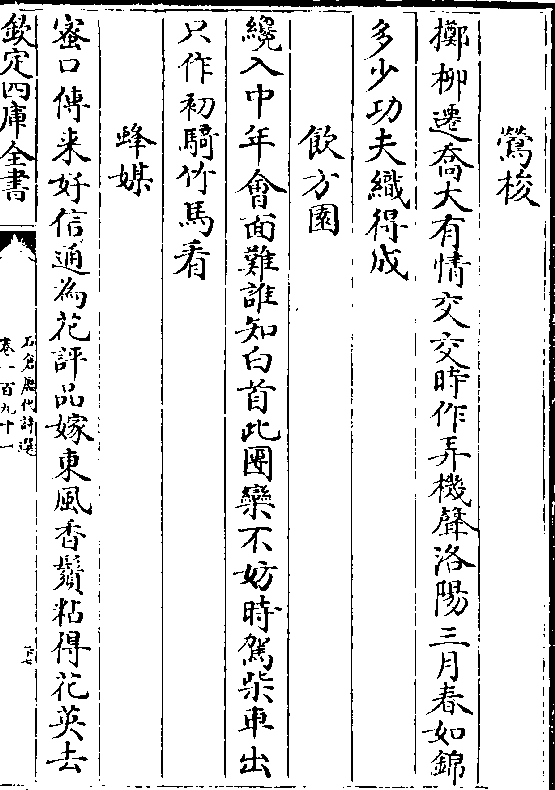 鶯梭
擲柳遷喬大有情交交時作弄機聲洛陽三月春如錦
多少功夫織得成
飲方園
纔入中年會面難誰知白首此團欒不妨時駕柴車出
只作初騎竹馬看
蜂媒
蜜口傳来好信通為花評品嫁東風香鬚粘得花英去
欽定四庫全書
石倉歷代詩選
卷一百九十一